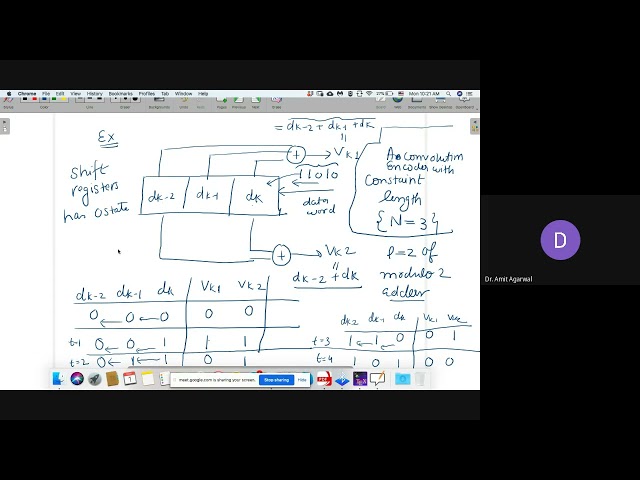 Chrome File Edit View History Bookmarks Profiles Tab Window Help
Mon 10:21 AM
Ex
= dk-2 + dk-1 + dk
Shift
registers
has 0 state
VK1
11010
dk-2 dk-1 dk
data
word
A convolution
encoder with
Constraint
length
{N=3}
VK2
dk-2 + dk
P=2 of
modulo 2
adder
dk-2 dk-1 dk VK1 VK2
0 0 0 0 0
t=1 0 0 1 1 1
t=2 0 1 1 0 1
dk2 dk-1 dk VK1 VK2
t=3 1 1 0 0 1
t=4 1 0 1 0 0
meet.google.com is sharing your screen.
Stop sharing
Hide
D
Dr. Amit Agarwal